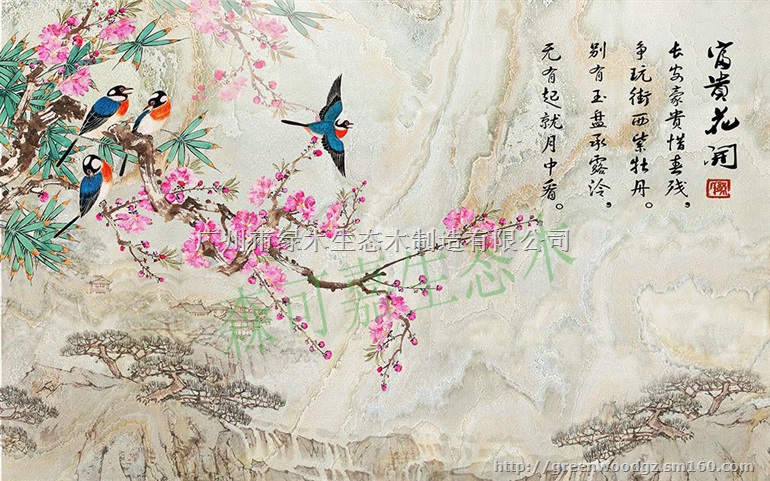 富貴花開
长安豪貴惜春残，
争玩街西紫牡丹。
别有玉盘承露泠，
无有起就月中看。
广州市绿禾生态木制造有限公司
森可嘉生态木
http://greenwoodgz.sm160.com